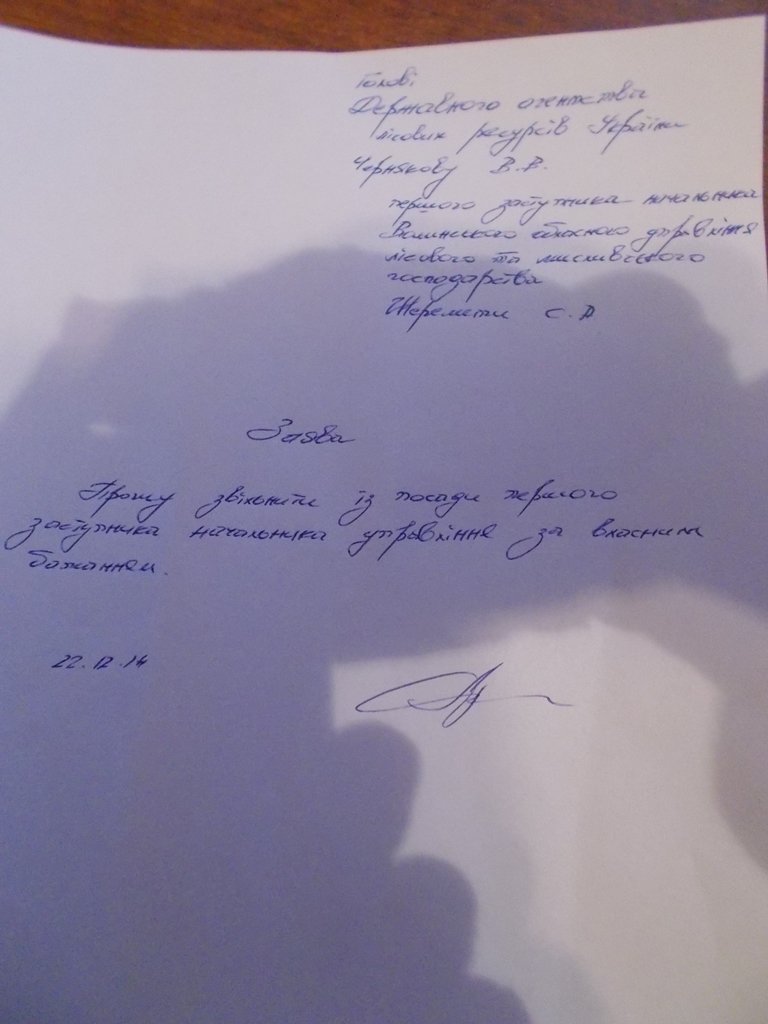 Голові
Державного агентства
лісових ресурсів України
Чернякову В.В.
першого заступника начальника
Волинського обласного управління
лісового та мисливського
господарства
Шеремети С.П
Заява
Прошу звільнити із посади першого
заступника начальника управління за власним
бажанням.
22.12.14